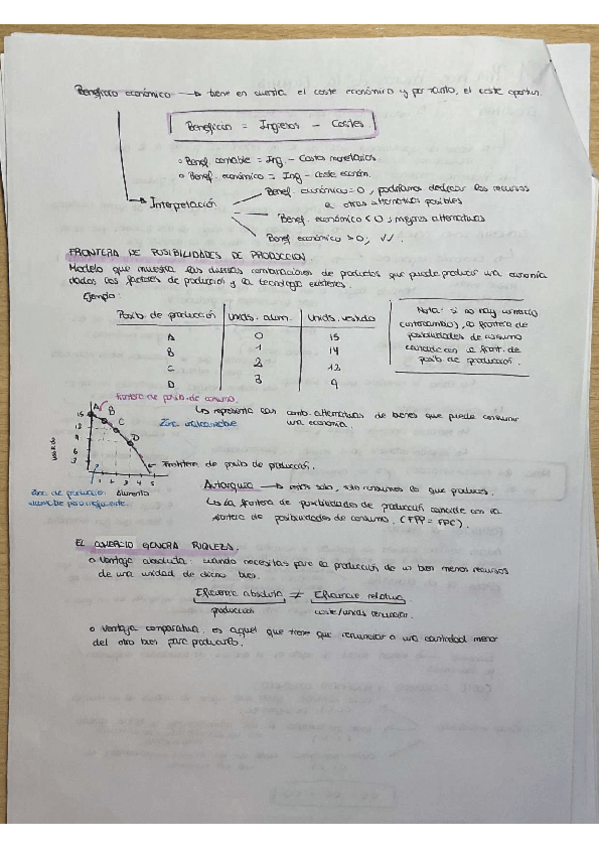 Beneficio económico → tiene en cuenta el coste económico y por tanto, el coste oportun.
Beneficios = Ingresos - Costes
o Benef. contable = Ing - Costes monetarios
o Benef. económico = Ing - coste econom.
→ Interpretación
Benef. económico = 0, podríamos dedicar los recursos
a otras alternativas posibles
Benef. económico < 0; mejores alternativas
Benef económico > 0; ✓✓.
FRONTERA DE POSIBILIDADES DE PRODUCCION.
Modelo que muestra las diversas combinaciones de productos que puede producir una economía
dados los factores de productos y la tecnología existentes.
Ejemplo:
Posib. de producción | unids. alim. | unids. vestido
A 0 15
B 1 14
C 2 12
D 3 9
Nota: si no hay comercio
(intercambio), la frontera de
posibilidades de consumo
coincide con la front. de
posib. de producción.
frontera de posib. de consumo.
↳ representa las comb. alternativas de bienes que puede consumir
una economía.
Zona inalcanzable
15 A B
12 C
9 D
6
3
1 2 3 4 5
vestido
alimento
→ frontera de posib de producción.
Autarquía → país solo, solo consumes lo que produces.
↳ la frontera de posibilidades de producción coincide con la
frontera de posibilidades de consumo. (FPP = FPC).
EL COMERCIO GENERA RIQUEZA.
o Ventaja absoluta: cuando necesitas para la producción de un bien menos recursos
de una unidad de dicho bien.
Eficiencia absoluta ≠ Eficiencia relativa
producción coste/unids
o Ventaja comparativa. es aquel que tiene que renunciar a una cantidad menor
del otro bien para producirlo.